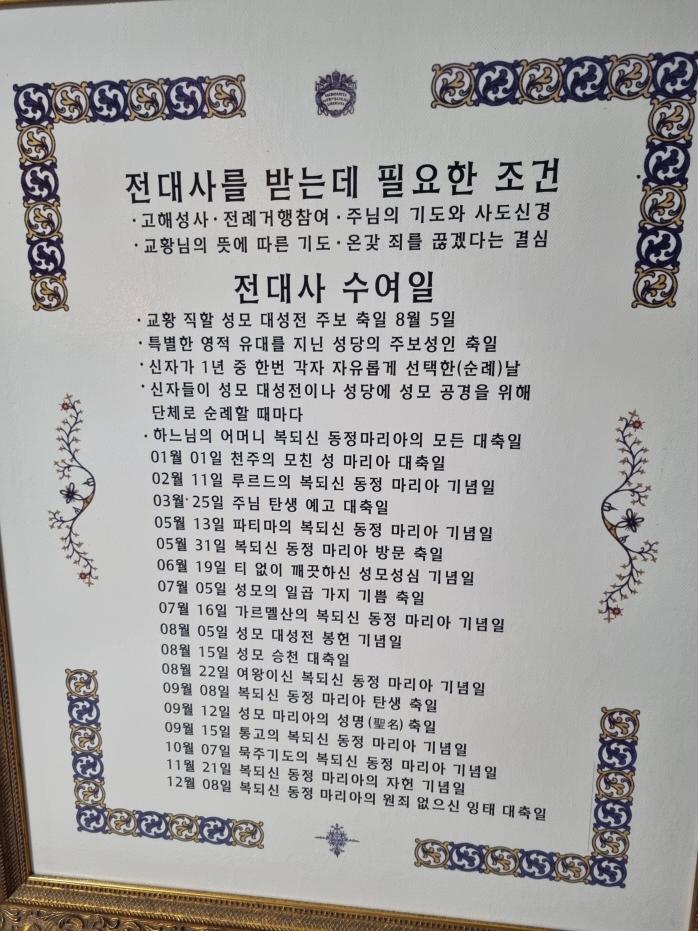 전대사를 받는데 필요한 조건
·고해성사·전례거행참여·주님의 기도와 사도신경
·교황님의 뜻에 따른 기도·온갖 죄를 끊겠다는 결심
전대사 수여일
·교황 직할 성모 대성전 주보 축일 8월 5일
·특별한 영적 유대를 지닌 성당의 주보성인 축일
·신자가 1년 중 한번 각자 자유롭게 선택한(순례)날
·신자들이 성모 대성전이나 성당에 성모 공경을 위해
단체로 순례할 때마다
·하느님의 어머니 복되신 동정마리아의 모든 대축일
01월 01일 천주의 모친 성 마리아 대축일
02월 11일 루르드의 복되신 동정 마리아 기념일
03월 25일 주님 탄생 예고 대축일
05월 13일 파티마의 복되신 동정 마리아 기념일
05월 31일 복되신 동정 마리아 방문 축일
06월 19일 티 없이 깨끗하신 성모성심 기념일
07월 05일 성모의 일곱 가지 기쁨 축일
07월 16일 가르멜산의 복되신 동정 마리아 기념일
08월 05일 성모 대성전 봉헌 기념일
08월 15일 성모 승천 대축일
08월 22일 여왕이신 복되신 동정 마리아 기념일
09월 08일 복되신 동정 마리아 탄생 축일
09월 12일 성모 마리아의 성명(聖名)축일
09월 15일 통고의 복되신 동정 마리아 기념일
10월 07일 묵주기도의 복되신 동정 마리아 기념일
11월 21일 복되신 동정 마리아의 자헌 기념일
12월 08일 복되신 동정 마리아의 원죄 없으신 잉태 대축일